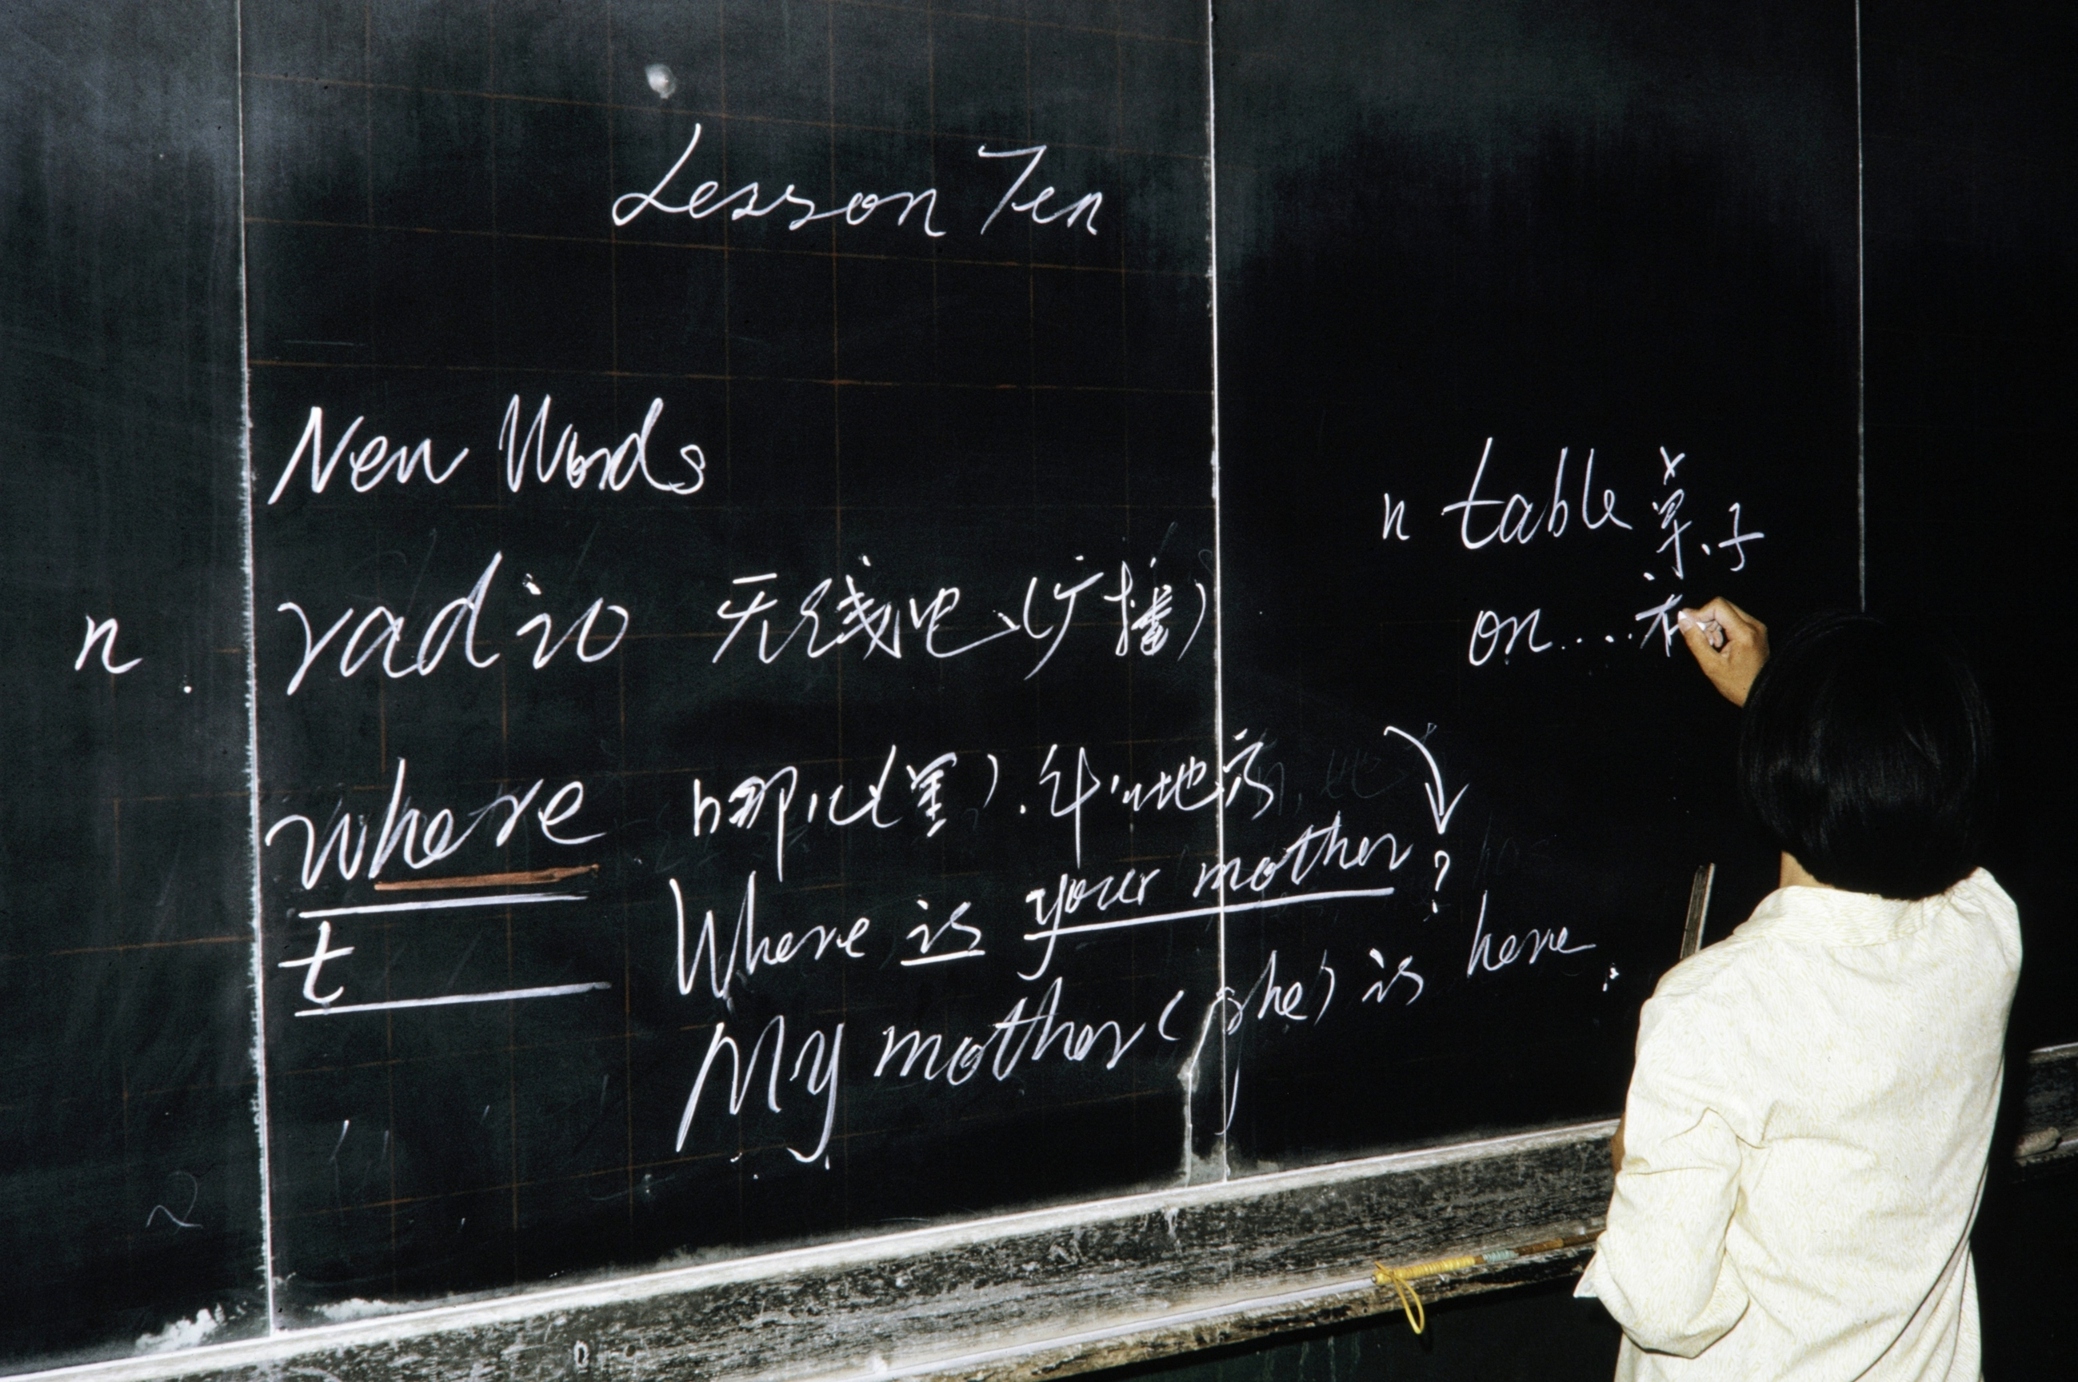 Lesson Ten
New Words
n. radio 无线电(广播)
where 哪儿(里).什么地方
t Where is your mother?
My mother (she) is here.
n table 桌子
on... 在